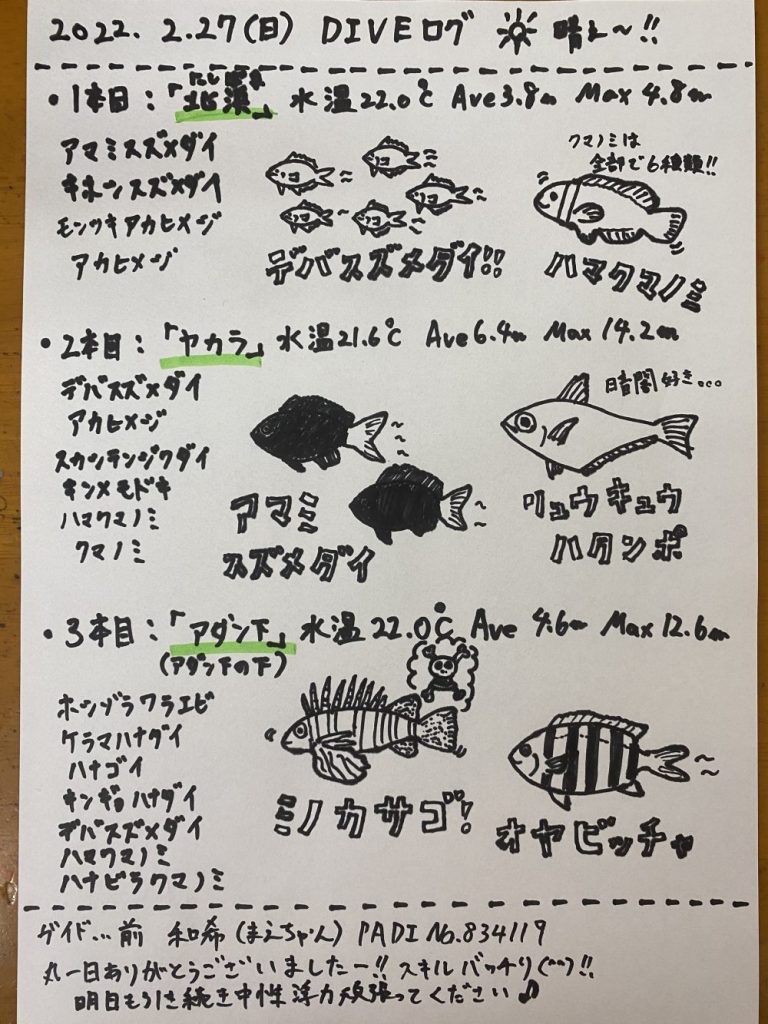 2022. 2.27(日) DIVEログ 晴れ〜!!
・1本目:「北浜」 水温22.0℃ Ave3.8m Max 4.8m
にしばま
アマミスズメダイ
キホシスズメダイ
モンツキアカヒメジ
アカヒメジ
デバスズメダイ!!
クマノミは
全部で6種類!!
ハマクマノミ
・2本目:「ヤカラ」 水温21.6℃ Ave6.4m Max 14.2m
デバスズメダイ
アカヒメジ
スカシテンジクダイ
キンメモドキ
ハマクマノミ
クマノミ
アマミ
スズメダイ
暗闇好き...
リュウキュウ
ハタンポ
・3本目:「アダン下」 水温22.0℃ Ave 4.6m Max 12.6m
(アダン下の下)
ホソヅラワラエビ
ケラマハナダイ
ハナゴイ
キンギョハナダイ
デバスズメダイ
ハマクマノミ
ハナビラクマノミ
ミノカサゴ!
オヤビッチャ
ゲイド...前 和希(まえちゃん) PADI No.834119
丸一日ありがとうございましたー!! スキルバッチリ(^^)!!
明日もひき続き中性浮力頑張ってください♪